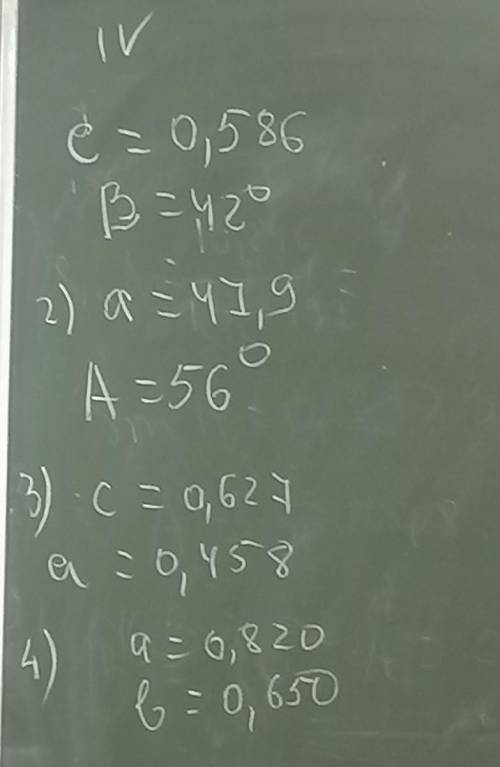 IV
c = 0,586
B = 42°
2) a = 47,9
A = 56°
3) c = 0,627
a = 0,458
4) a = 0,820
b = 0,650